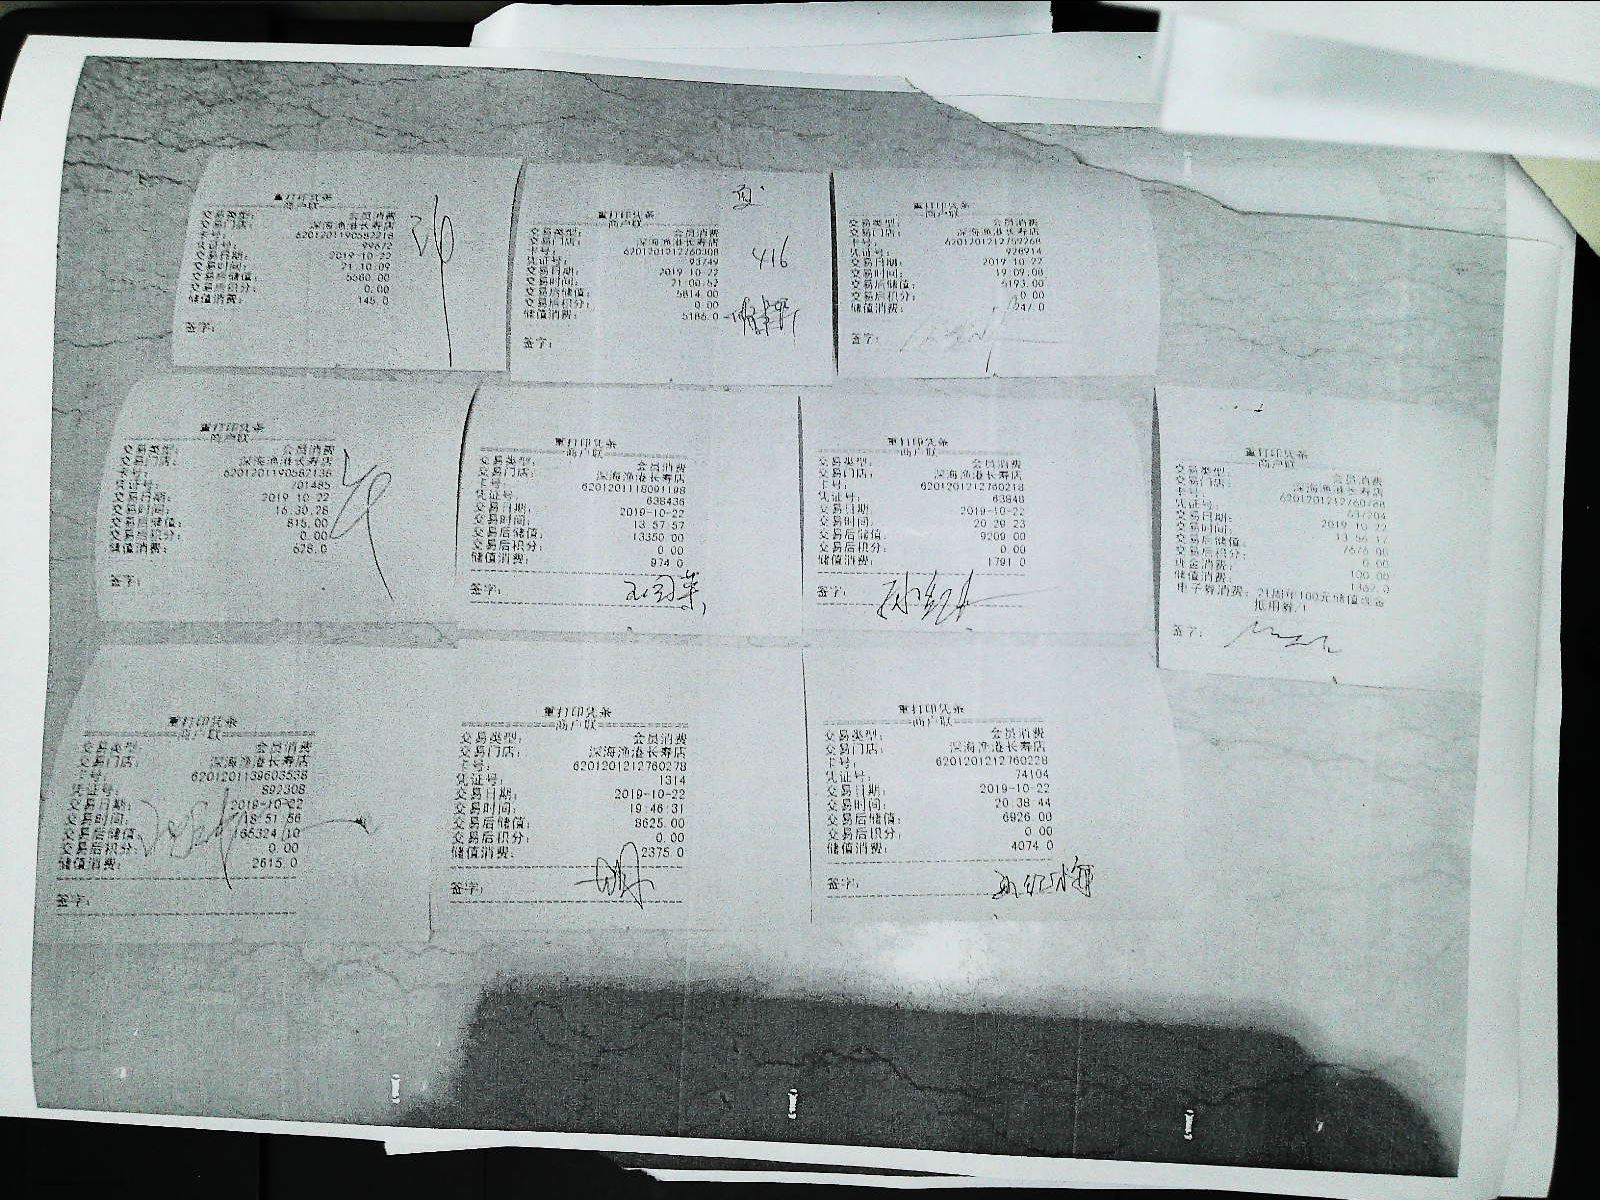 重打印凭条
商户联
交易类型： 会员消费
交易门店： 深海渔港长寿店
卡号： 6201201190582218
凭证号： 99672
交易日期： 2019-10-22
交易时间： 21:10:09
交易后储值： 5580.00
交易后积分： 0.00
储值消费： 145.0
签字：
重打印凭条
商户联
交易类型： 会员消费
交易门店： 深海渔港长寿店
卡号： 6201201212760308
凭证号： 93749
416
交易日期： 2019-10-22
交易时间： 21:00:52
交易后储值： 5814.00
交易后积分： 0.00
储值消费： 5186.0
签字：
重打印凭条
商户联
交易类型： 会员消费
交易门店： 深海渔港长寿店
卡号： 6201201212752268
凭证号： 928914
交易日期： 2019-10-22
交易时间： 19:09:08
交易后储值： 6193.00
交易后积分： 0.00
储值消费：
签字：
重打印凭条
商户联
交易类型： 会员消费
交易门店： 深海渔港长寿店
卡号： 6201201190582138
凭证号： 701485
交易日期： 2019-10-22
交易时间： 16:30:28
交易后储值： 815.00
交易后积分： 0.00
储值消费： 628.0
签字：
重打印凭条
商户联
交易类型： 会员消费
交易门店： 深海渔港长寿店
卡号： 6201201118091198
凭证号： 638436
交易日期： 2019-10-22
交易时间： 13:57:57
交易后储值： 13350.00
交易后积分： 0.00
储值消费： 974.0
签字：
重打印凭条
商户联
交易类型： 会员消费
交易门店： 深海渔港长寿店
卡号： 6201201212760218
凭证号： 63848
交易日期： 2019-10-22
交易时间： 20:29:23
交易后储值： 9209.00
交易后积分： 0.00
储值消费： 1791.0
签字：
重打印凭条
商户联
交易类型： 会员消费
交易门店： 深海渔港长寿店
卡号： 6201201212760768
凭证号： 637204
交易日期： 2019-10-22
交易时间： 13:56:17
交易后储值： 7676.00
交易后积分： 0.00
现金消费： 0.00
储值消费： 1362.0
电子券消费： 21周年100元储值现金
抵用券/1
签字：
重打印凭条
商户联
交易类型： 会员消费
交易门店： 深海渔港长寿店
卡号： 6201201139603538
凭证号： 892308
交易日期： 2019-10-22
交易时间： 18:51:56
交易后储值： 65324.10
交易后积分： 0.00
储值消费： 2615.0
签字：
重打印凭条
商户联
交易类型： 会员消费
交易门店： 深海渔港长寿店
卡号： 6201201212760278
凭证号： 1314
交易日期： 2019-10-22
交易时间： 19:46:31
交易后储值： 8625.00
交易后积分： 0.00
储值消费： 2375.0
签字：
重打印凭条
商户联
交易类型： 会员消费
交易门店： 深海渔港长寿店
卡号： 6201201212760228
凭证号： 74104
交易日期： 2019-10-22
交易时间： 20:38:44
交易后储值： 6926.00
交易后积分： 0.00
储值消费： 4074.0
签字：